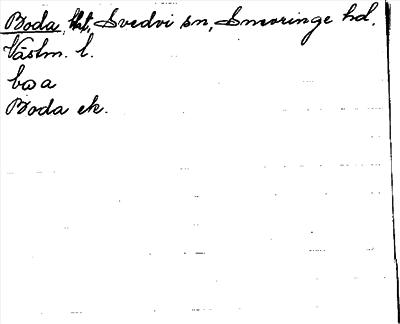 Boda, Svedvi sn, Snevringe hd.
Västm. l.
bωa
Boda ek.